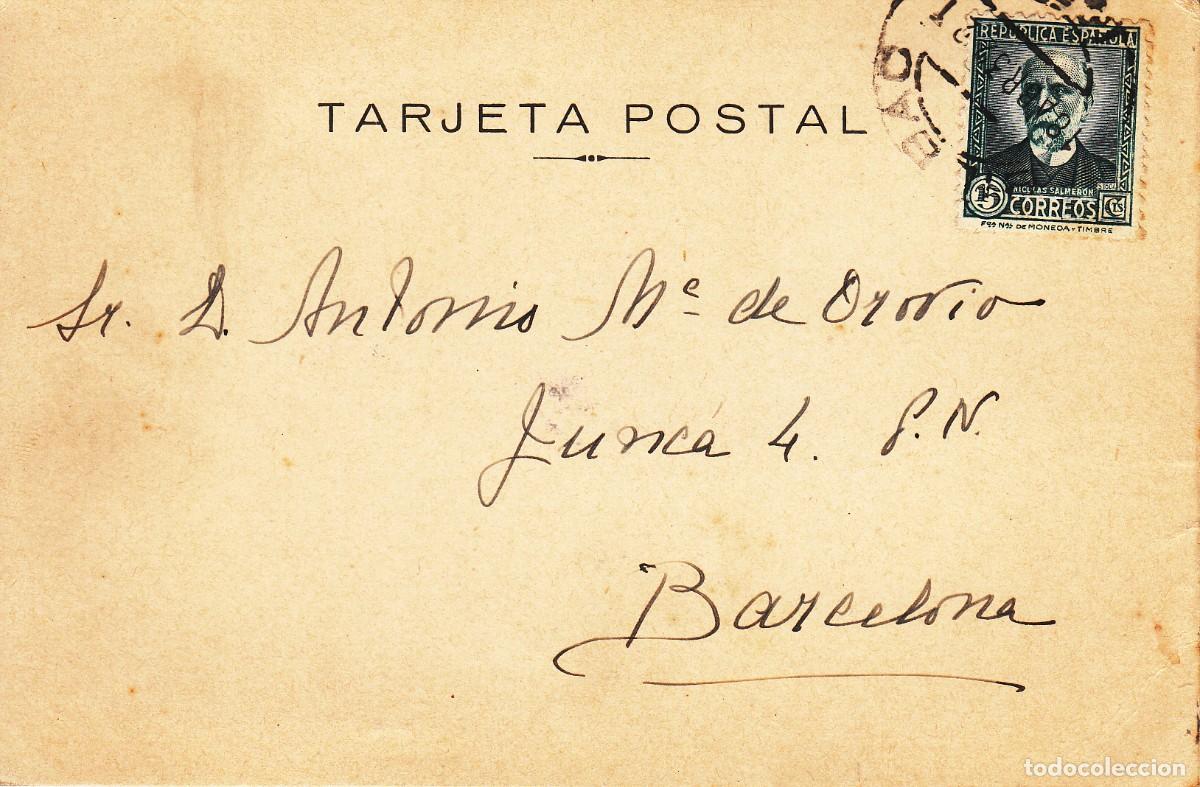 REPÚBLICA ESPAÑOLA
TARJETA POSTAL
NICOLAS SALMERÓN
15 CORREOS CTS
Fca Nal DE MONEDA Y TIMBRE
Sr. D. Antonio Mª de Orovio
Juncá 4. P.N.
Barcelona
todocoleccion